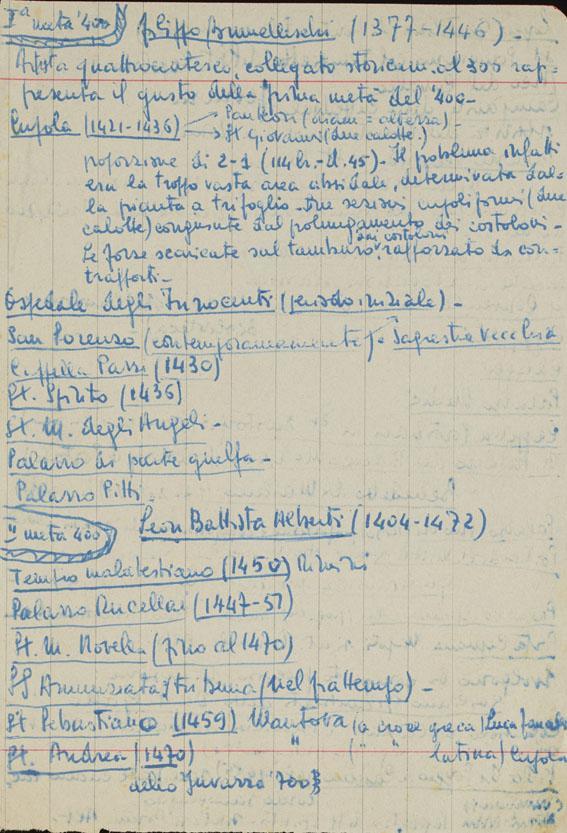 Iª metà '400 Filippo Brunelleschi (1377-1446) -
Artista quattrocentesco, collegato storicam. al 300 rap-
presenta il gusto della prima metà del '400 -
Cupola (1421-1436) Panteon (diam = altezza)
St Giovanni (due calotte)
poporzione di 2-1 (114 h. - d. 45) - Il problema infatti
era la troppo vasta area absidale, determinata dal-
la pianta a trifoglio - tre cupoliformi (due
calotte) congiunte dal polungamento dei costoloni -
Le forze scaricate sul tamburo dai costoloni rafforzato da con-
trafforti -
Ospedale degli Innocenti (periodo iniziale) -
San Lorenzo (contemporaneamente) Sagrestia Vecchia
Cappella Pazzi (1430)
St. Spirito (1436)
St. M. degli Angeli -
Palazzo di parte guelfa -
Palazzo Pitti -
II metà 400 Leon Battista Alberti (1404-1472)
Tempio malatestiano (1450) Rimini
Palazzo Rucellai (1447-51)
St. M. Novella (fino al 1470)
SS Annunziata tribuna (nel frattempo) -
St Sebastiano (1459) Mantova (a croce greca) Luca
St. Andrea (1470) " ( " " latina) Cupola
dello Juvarra '700